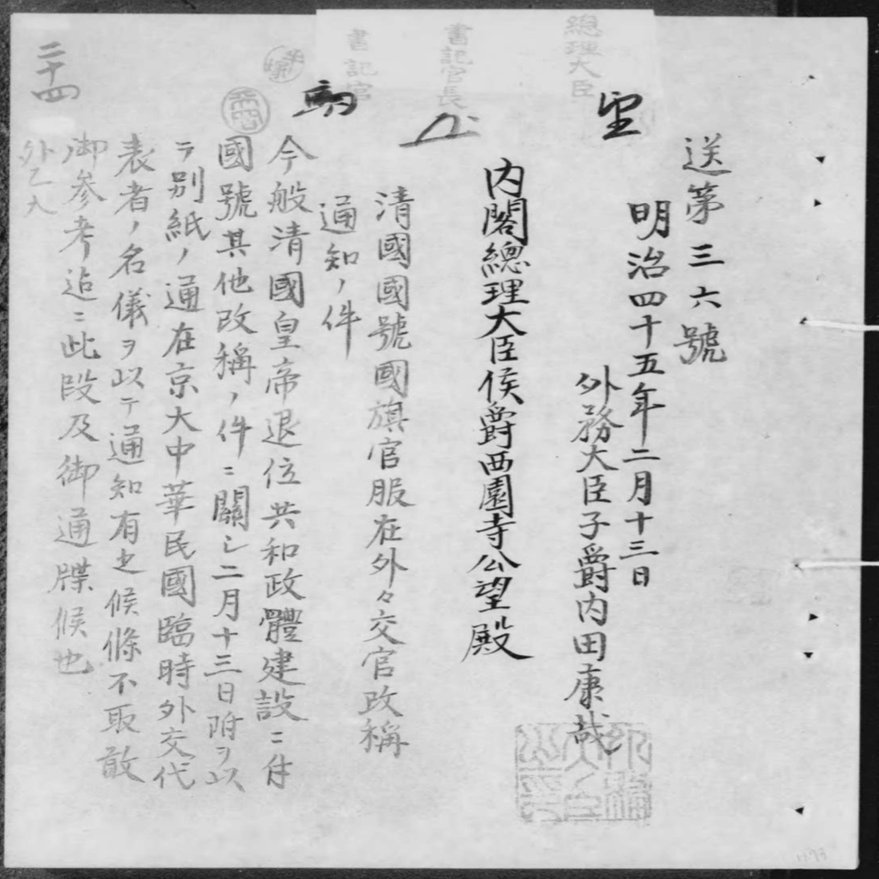 總理大臣
書記官長
書記官
送第三六號
明治四十五年二月十三日
外務大臣子爵内田康哉
内閣總理大臣侯爵西園寺公望殿
清國國號國旗官服在外々交官改稱
通知ノ件
今般清國皇帝退位共和政體建設ニ付
國號其他改稱ノ件ニ關シ二月十三日附ヲ以
テ別紙ノ通在京大中華民國臨時外交代
表者ノ名儀ヲ以テ通知有之候條不取敢
御参考迠ニ此段及御通牒候也
二十四
1193